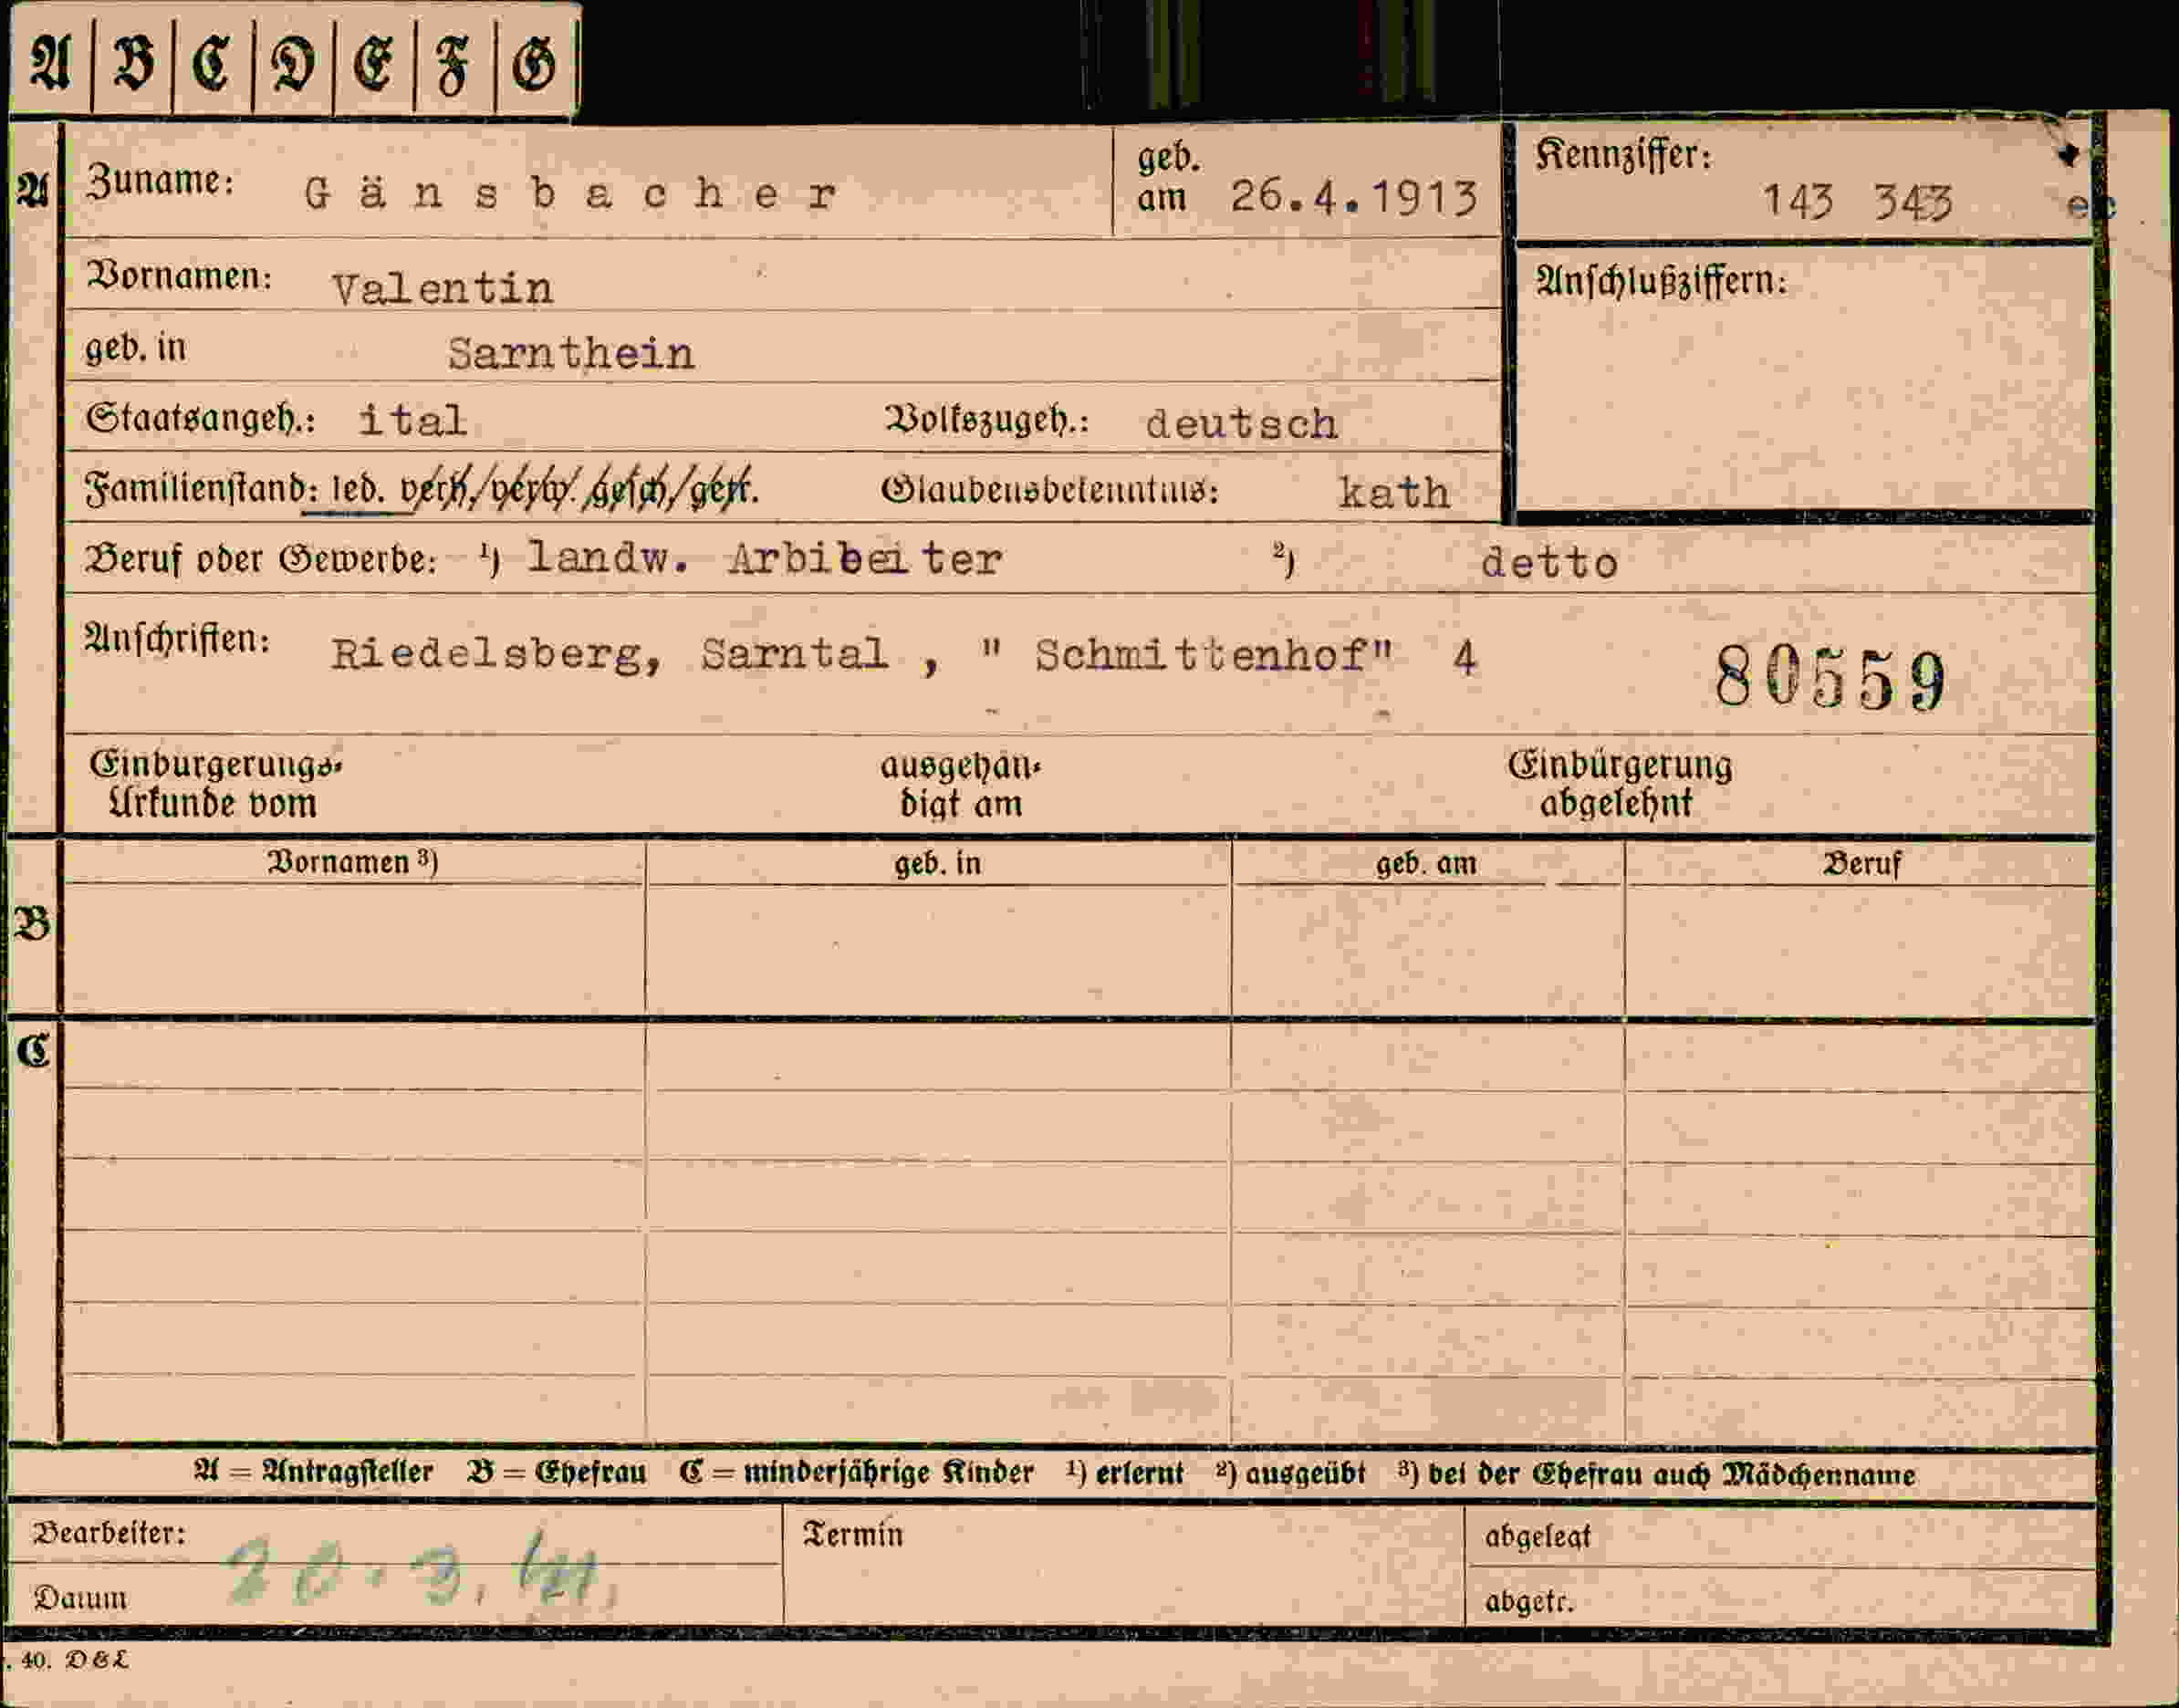 A | B | C | D | E | F | G
A Zuname: Gänsbacher geb. am 26.4.1913 Kennziffer: 143 343
Vornamen: Valentin Anschlußziffern:
geb. in Sarnthein
Staatsangeh.: ital Volkszugeh.: deutsch
Familienstand: led. verh./verw./gesch./getr. Glaubensbekenntnis: kath
Beruf oder Gewerbe: ¹) landw. Arbibeiter ²) detto
Anschriften: Riedelsberg, Sarntal , " Schmittenhof" 4 80559
Einbürgerungs- ausgehän- Einbürgerung
Urkunde vom digt am abgelehnt
Vornamen ³) geb. in geb. am Beruf
B
C
A = Antragsteller B = Ehefrau C = minderjährige Kinder ¹) erlernt ²) ausgeübt ³) bei der Ehefrau auch Mädchenname
Bearbeiter: Termin abgelegt
Datum 20.3. abgetr.
. 40. D&L